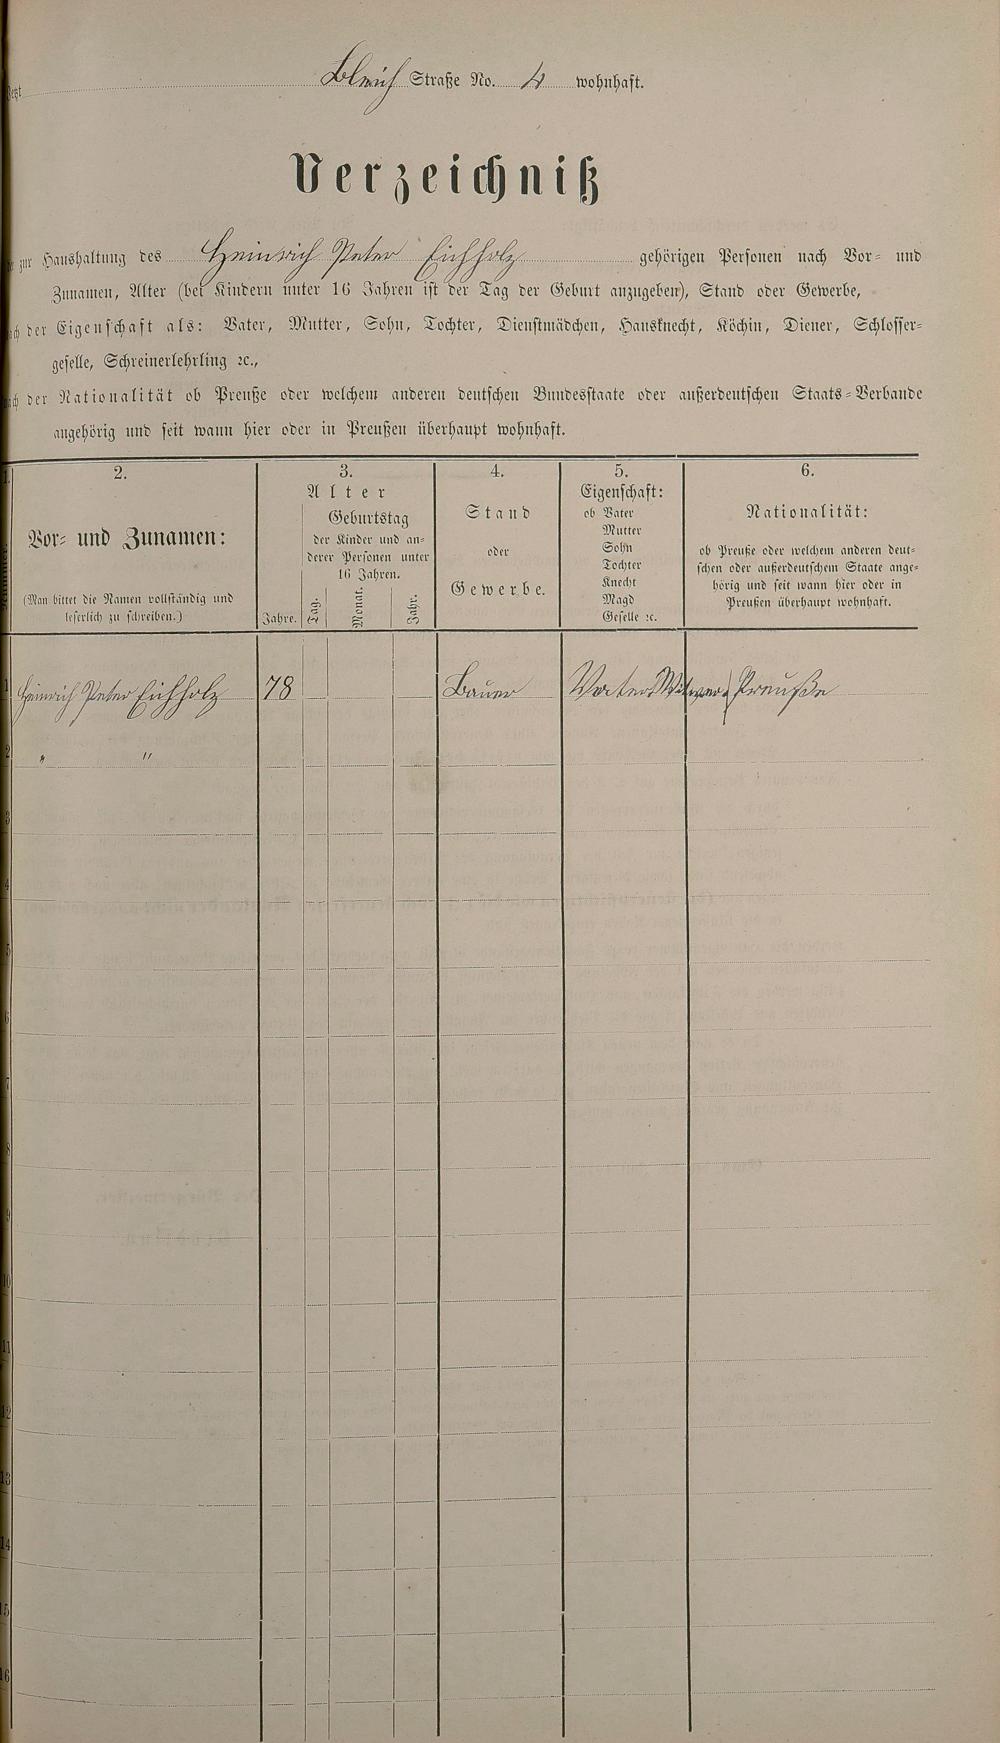 Bleich Straße No. 4 wohnhaft.
Verzeichniß
zur Haushaltung des Heinrich Peter Eichholz gehörigen Personen nach Vor- und
Zunamen, Alter (bei Kindern unter 16 Jahren ist der Tag der Geburt anzugeben), Stand oder Gewerbe,
der Eigenschaft als: Vater, Mutter, Sohn, Tochter, Dienstmädchen, Hausknecht, Köchin, Diener, Schlosser-
geselle, Schreinerlehrling ꝛc.,
der Nationalität ob Preuße oder welchem anderen deutschen Bundesstaate oder außerdeutschen Staats-Verbande
angehörig und seit wann hier oder in Preußen überhaupt wohnhaft.
1. 2. 3. 4. 5. 6.
Vor- und Zunamen:
(Man bittet die Namen vollständig und
leserlich zu schreiben.)
Alter
Jahre.
Geburtstag
der Kinder und an-
derer Personen unter
16 Jahren.
Tag. Monat. Jahr.
Stand
oder
Gewerbe.
Eigenschaft:
ob Vater
Mutter
Sohn
Tochter
Knecht
Magd
Geselle ꝛc.
Nationalität:
ob Preuße oder welchem anderen deut-
schen oder außerdeutschem Staate ange-
hörig und seit wann hier oder in
Preußen überhaupt wohnhaft.
1 Heinrich Peter Eichholz 78 Bauer Vater Preuße
2 " "
3
4
5
6
7
8
9
10
11
12
13
14
15
16